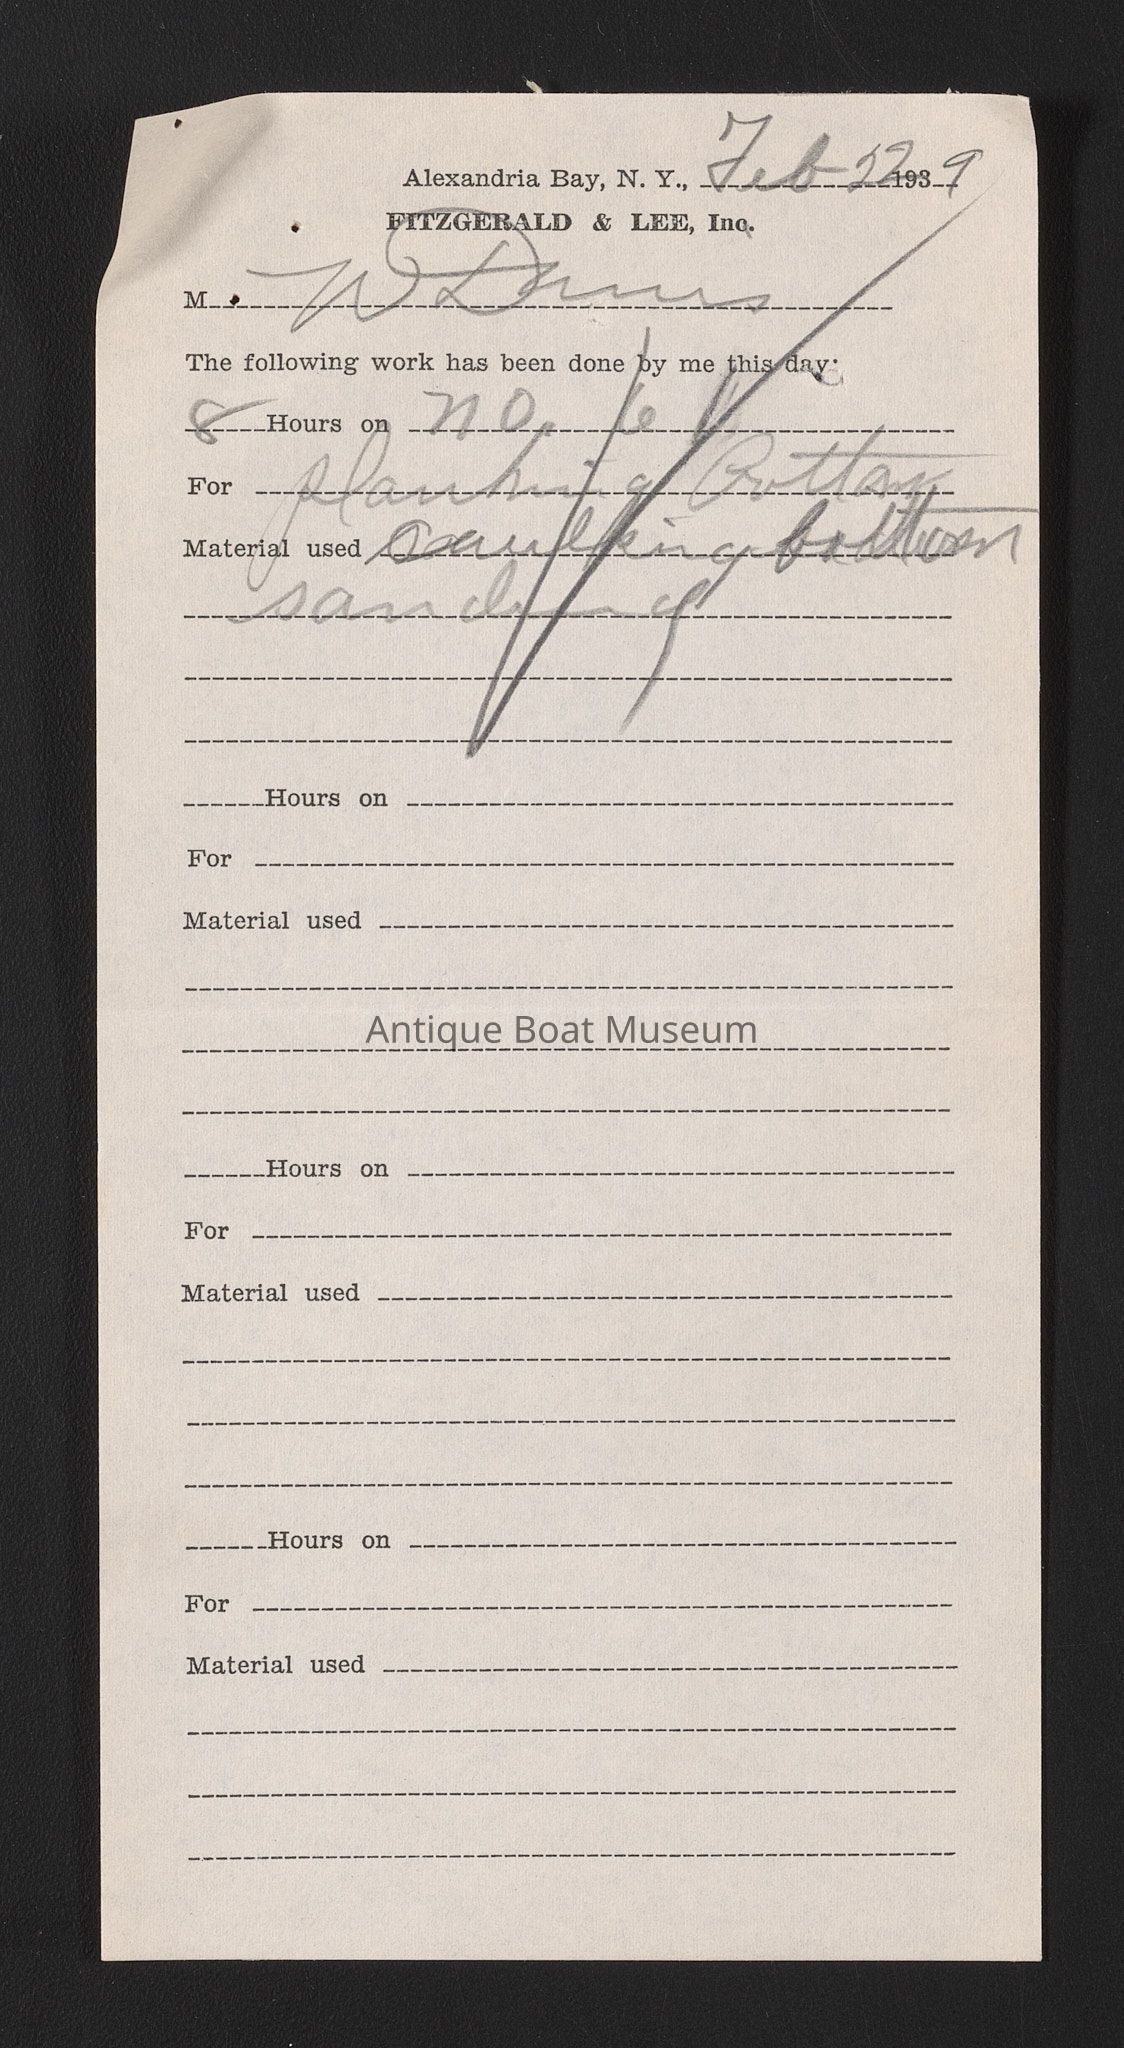 Alexandria Bay, N. Y., Feb 22 1939
FITZGERALD & LEE, Inc.
M. W Denus
The following work has been done by me this day:
8 Hours on no.
For planking Bottom
Material used caulking bottom
sanding
Hours on
For
Material used
Antique Boat Museum
Hours on
For
Material used
Hours on
For
Material used